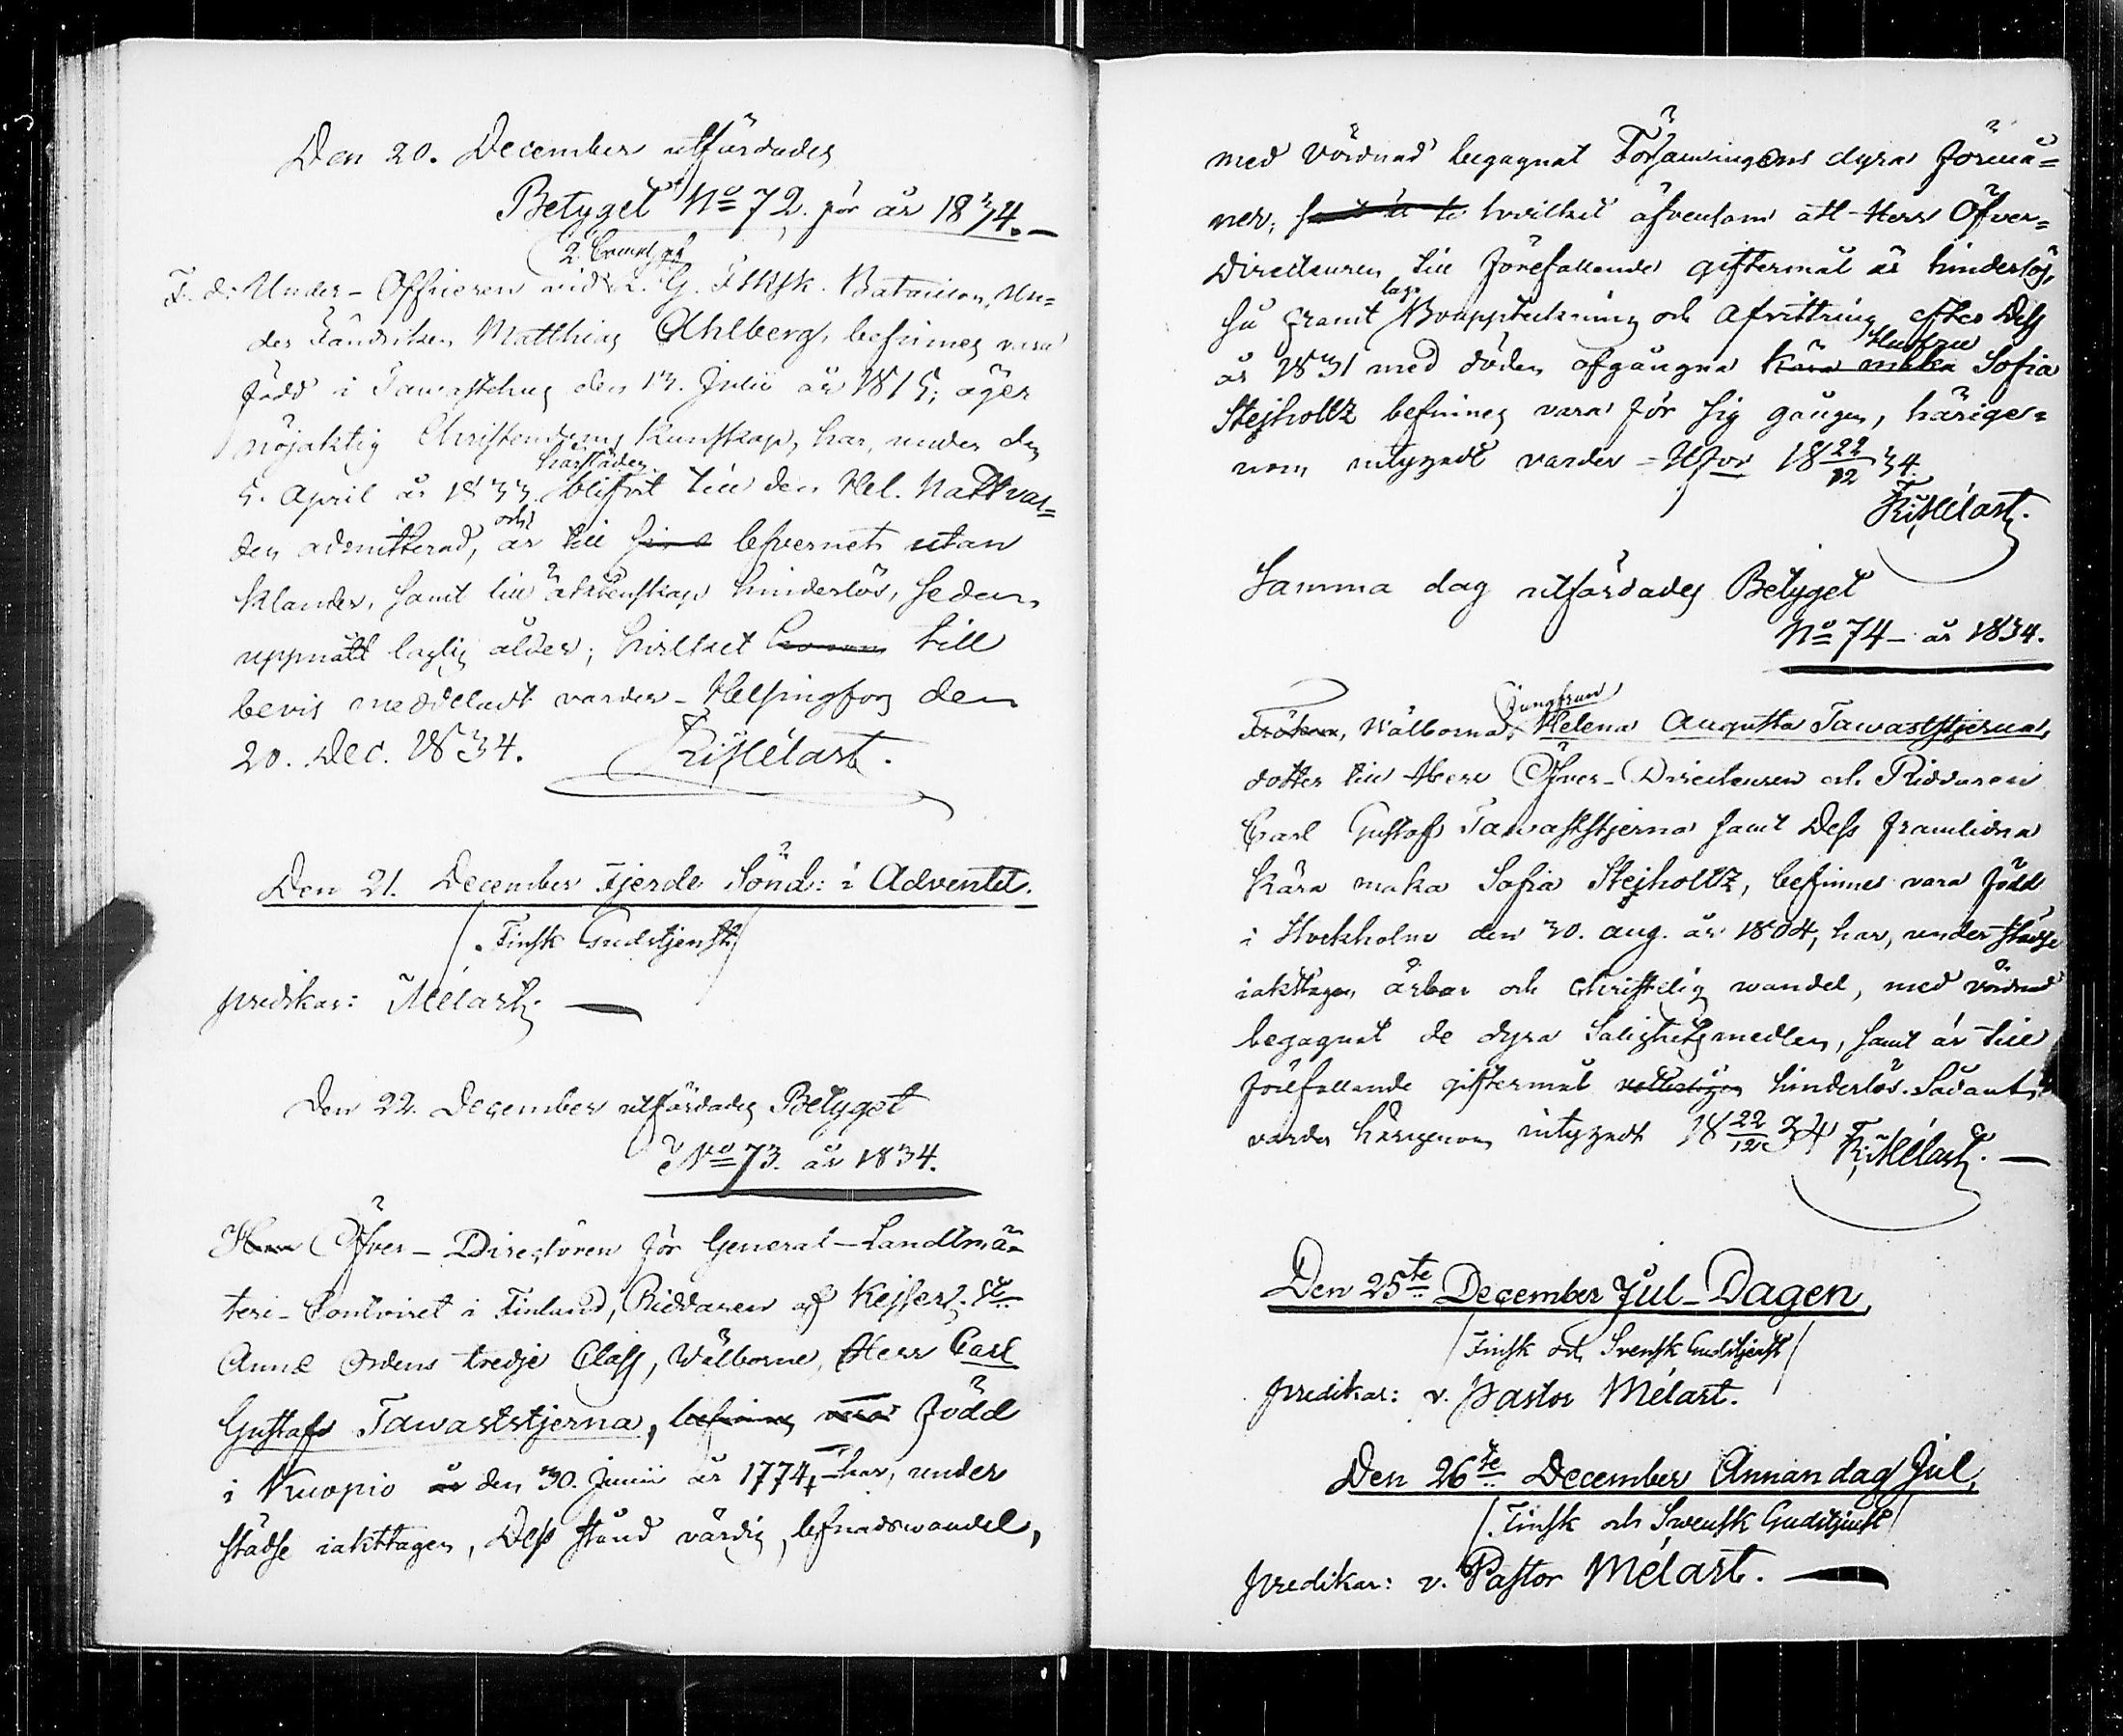 Den 20. December utfärdades
Betyget No 72. för år 1834.
2. Compagni
F. d. Under-Officeren vid L. G. F. Sksk. Bataillon, Un-
der Fändriken Matthias Ahlberg, befinnes vara
född i Tawastehus den 13. Julii år 1815; äger
nöjaktig Christendoms Kunskap, har, under den
härstädes
5. April år 1833. blifvit till den Hel. Nattvar-
och
den admitterad, är till sina lefvernet utan
klander, samt till äktenskap hinderlös, sedan
uppnått laglig ålder; hvilket honom till
bevis meddeladt varder - Helsingfors den
20. Dec. 1834. Mélart.
Den 21. December Fjerde Sönd: i Adventet.
Finsk Gudstjenst
predikar: Mélart.
Den 22. December utfärdades Betyget
No 73. år 1834.
Herr Öfver-Directören för General-Landtmä-
teri-Contoiret i Finland, Riddaren af Kejserl. Ste
Annæ Ordens tredje Class, Wälborne, Herr Carl
Gustaf Tawaststjerna, befinnes vara född
i Kuopio år den 30. Junii år 1774, har, under
städse iakttagen, Dess stånd värdig, lefnadswandel,
med vördnad begagnat Församlingens dyra förmå-
ner; hvilket äfvensom att Herr Öfver-
Directeuren till förefallande giftermål är hinderlös,
laga
så framt Bouppteckning och Afvittring efter Dess
Hustru
år 1831 med döden afgångna kära maka Sofia
Stejholtz befinnes vara för sig gången, härige-
nom intygadt varder - Hfors 18 22/12 34.
Mélart.
Samma dag utfärdades Betyget
No 74 - år 1834.
Jungfrun
Fröken, Wälborna, Helena Augusta Tawaststjerna,
dotter till Herr Öfver-Directeuren och Riddaren
Carl Gustaf Tawaststjerna samt Dess framlidna
Kära maka Sofia Stejholtz, befinnes vara född
i Stockholm den 30. aug. år 1804, har, under städse
iakttagen ärbar och christelig wandel, med vördnad
begagnat de dyra Salighetsmedlen, samt är till
förefallande giftermål hinderlös. Sådant
varder härigenom intygadt 18 22/12 34 Mélart.
Den 25te December Jul-Dagen,
Finsk och Svensk Gudstjenst
predikar: v. Pastor Mélart.
Den 26te December Annandag Jul,
Finsk och Swensk Gudstjenst
predikar: v. Pastor Mélart.